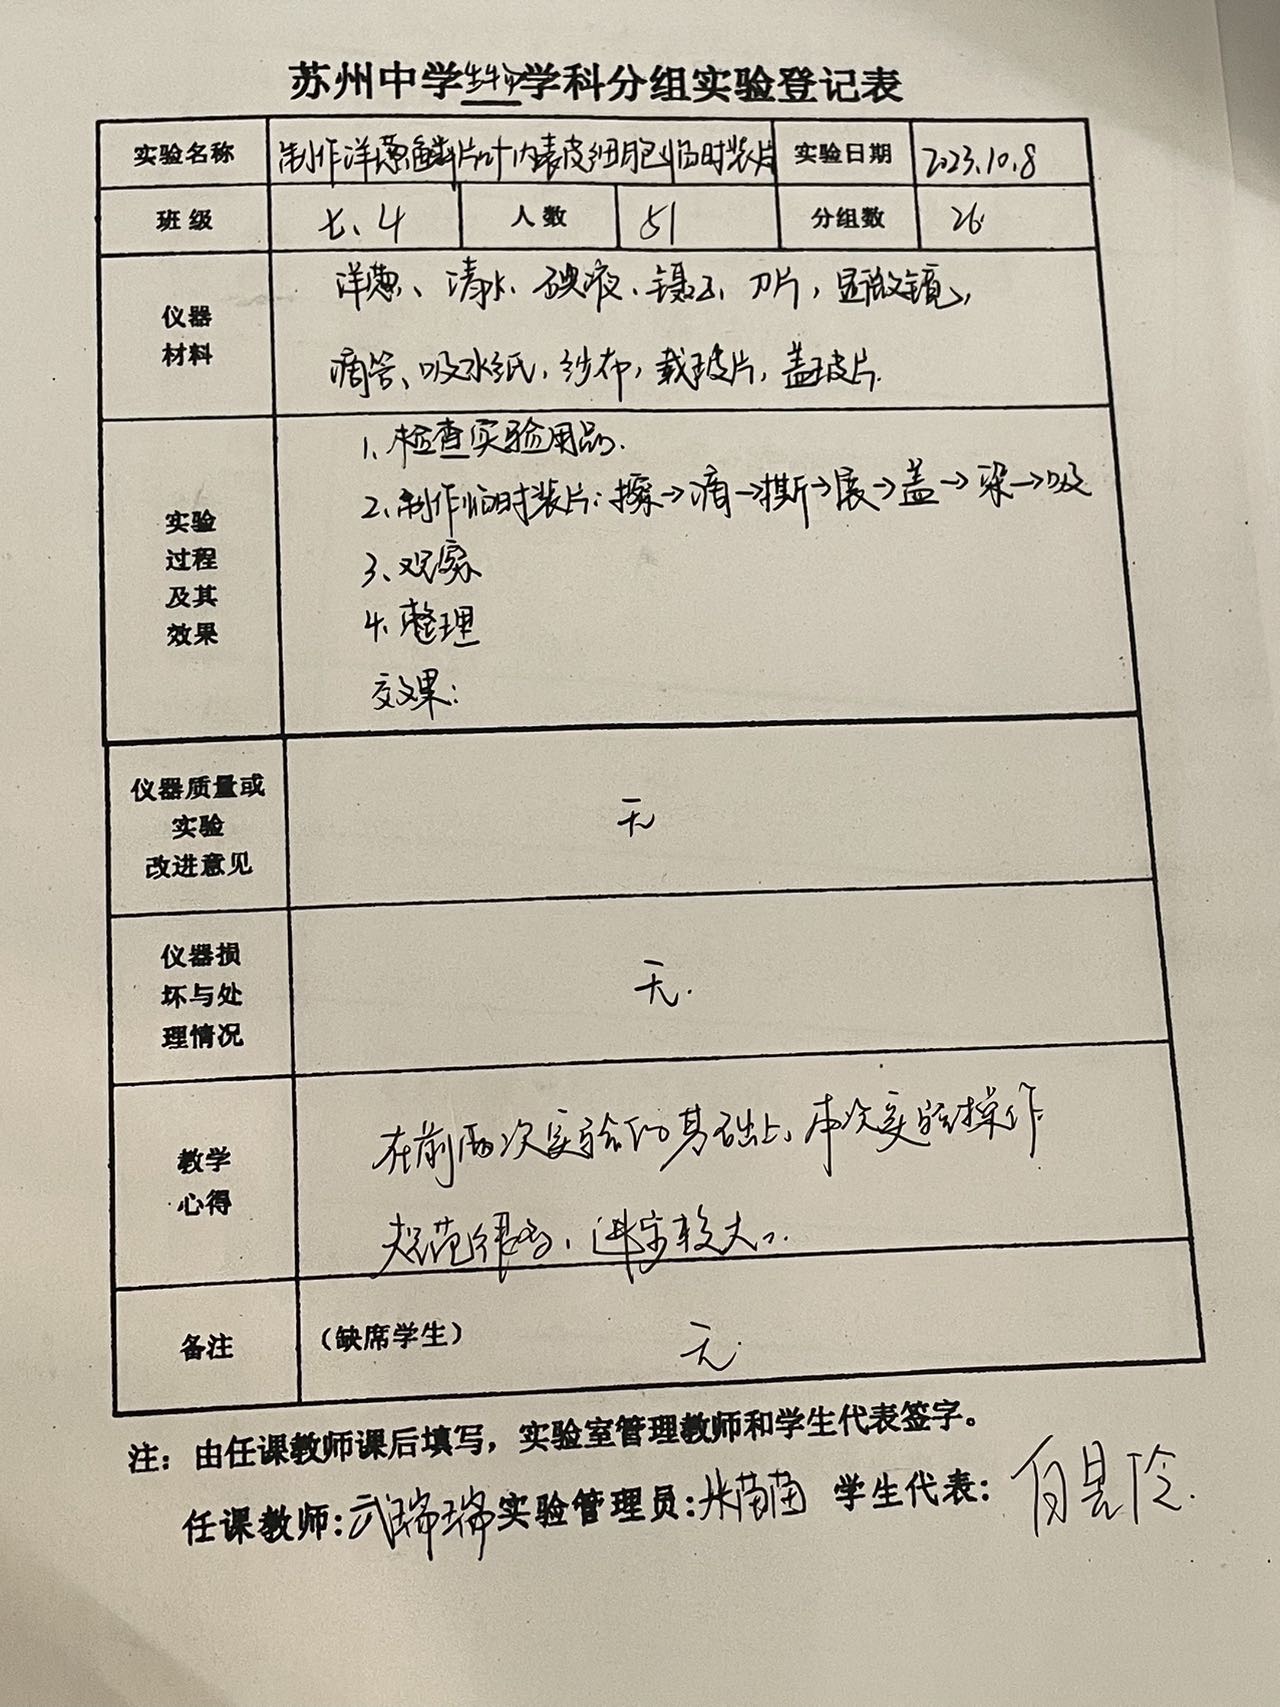 苏州中学生物学科分组实验登记表
实验名称 制作洋葱鳞片叶内表皮细胞临时装片 实验日期 2023.10.8
班级 七、4 人数 51 分组数 26
仪器
材料
洋葱、清水、碘液、镊子、刀片，显微镜，
滴管、吸水纸，纱布，载玻片，盖玻片.
实验
过程
及其
效果
1、检查实验用品.
2、制作临时装片：擦→滴→撕→展→盖→染→吸
3、观察
4、整理
效果：
仪器质量或
实验
改进意见
无
仪器损
坏与处
理情况
无.
教学
心得
在前两次实验的基础上，本次实验操作
规范很多，进步较大。
备注 （缺席学生） 无.
注：由任课教师课后填写，实验室管理教师和学生代表签字。
任课教师：武瑞瑞 实验管理员：张苗苗 学生代表：